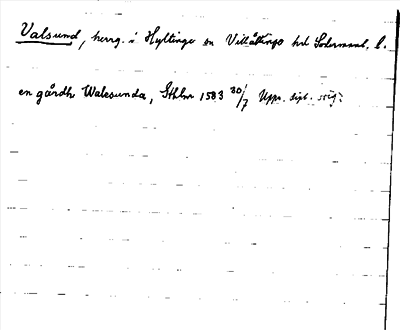 Valsund, herrg. i Hyltinge sn Villåttinge hd Södermanl. l.
en gårdh Walesunda, Sthlm 1583 30/7 Upps. dipl. orig.